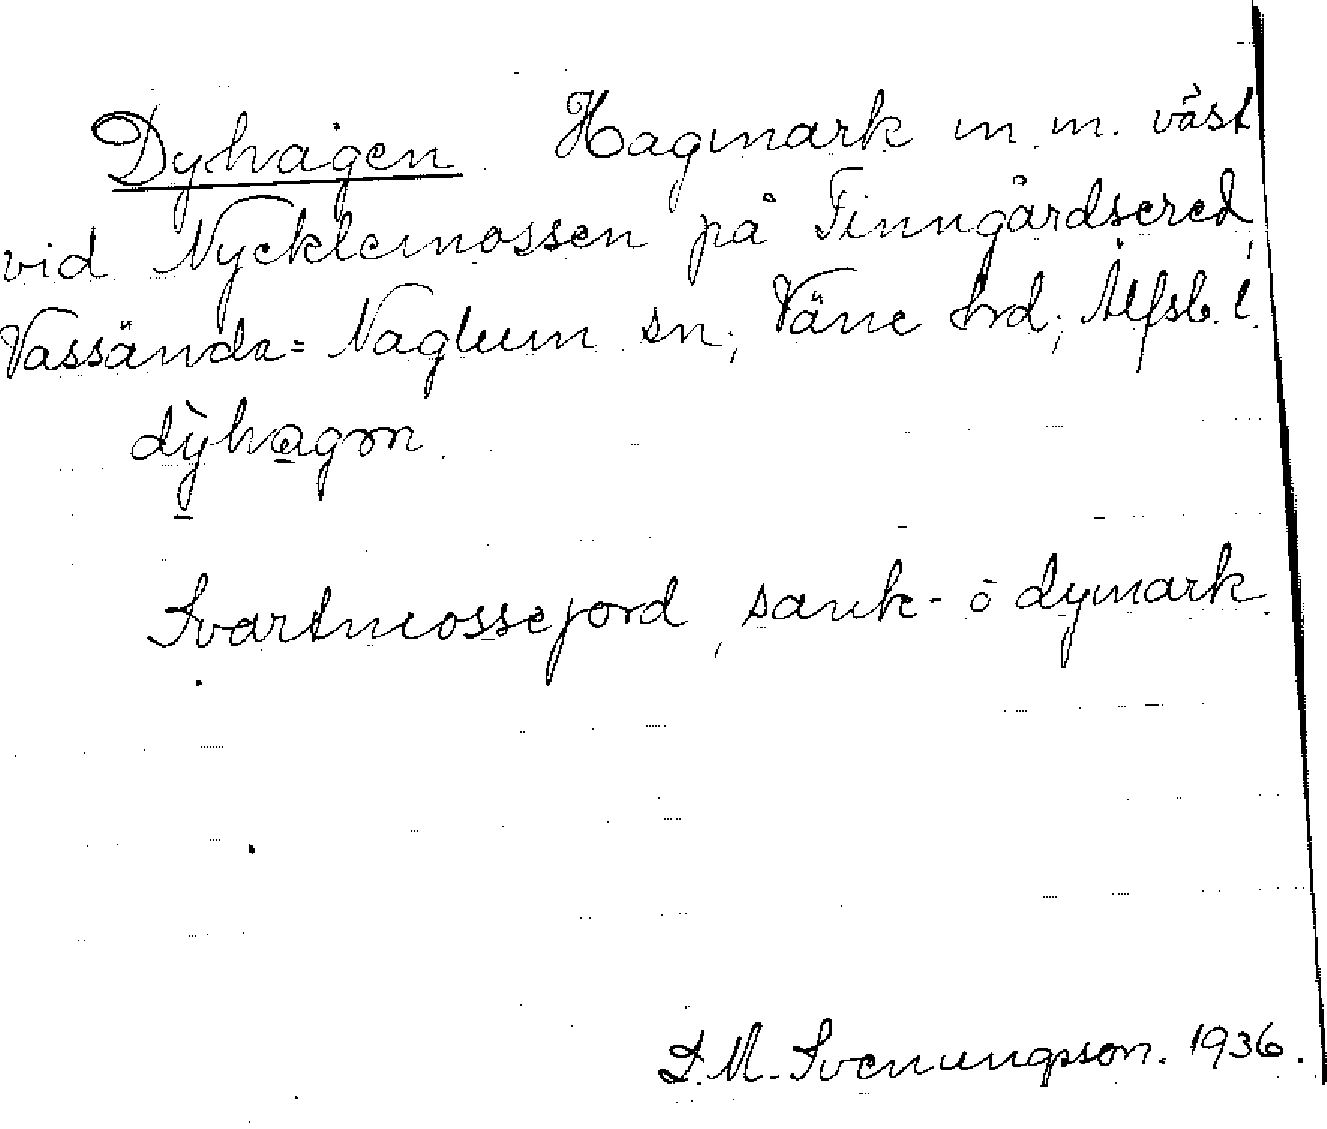 Dyhagen. Hagmark m.m. väst
vid Nycklemossen på Finngårdsered,
Vassända=Naglum sn, Väne hrd, Älfsb. l.
dỳhagən.
Svartmossejord, sank- ō dymark.
S. M. Svenungsson. 1936.